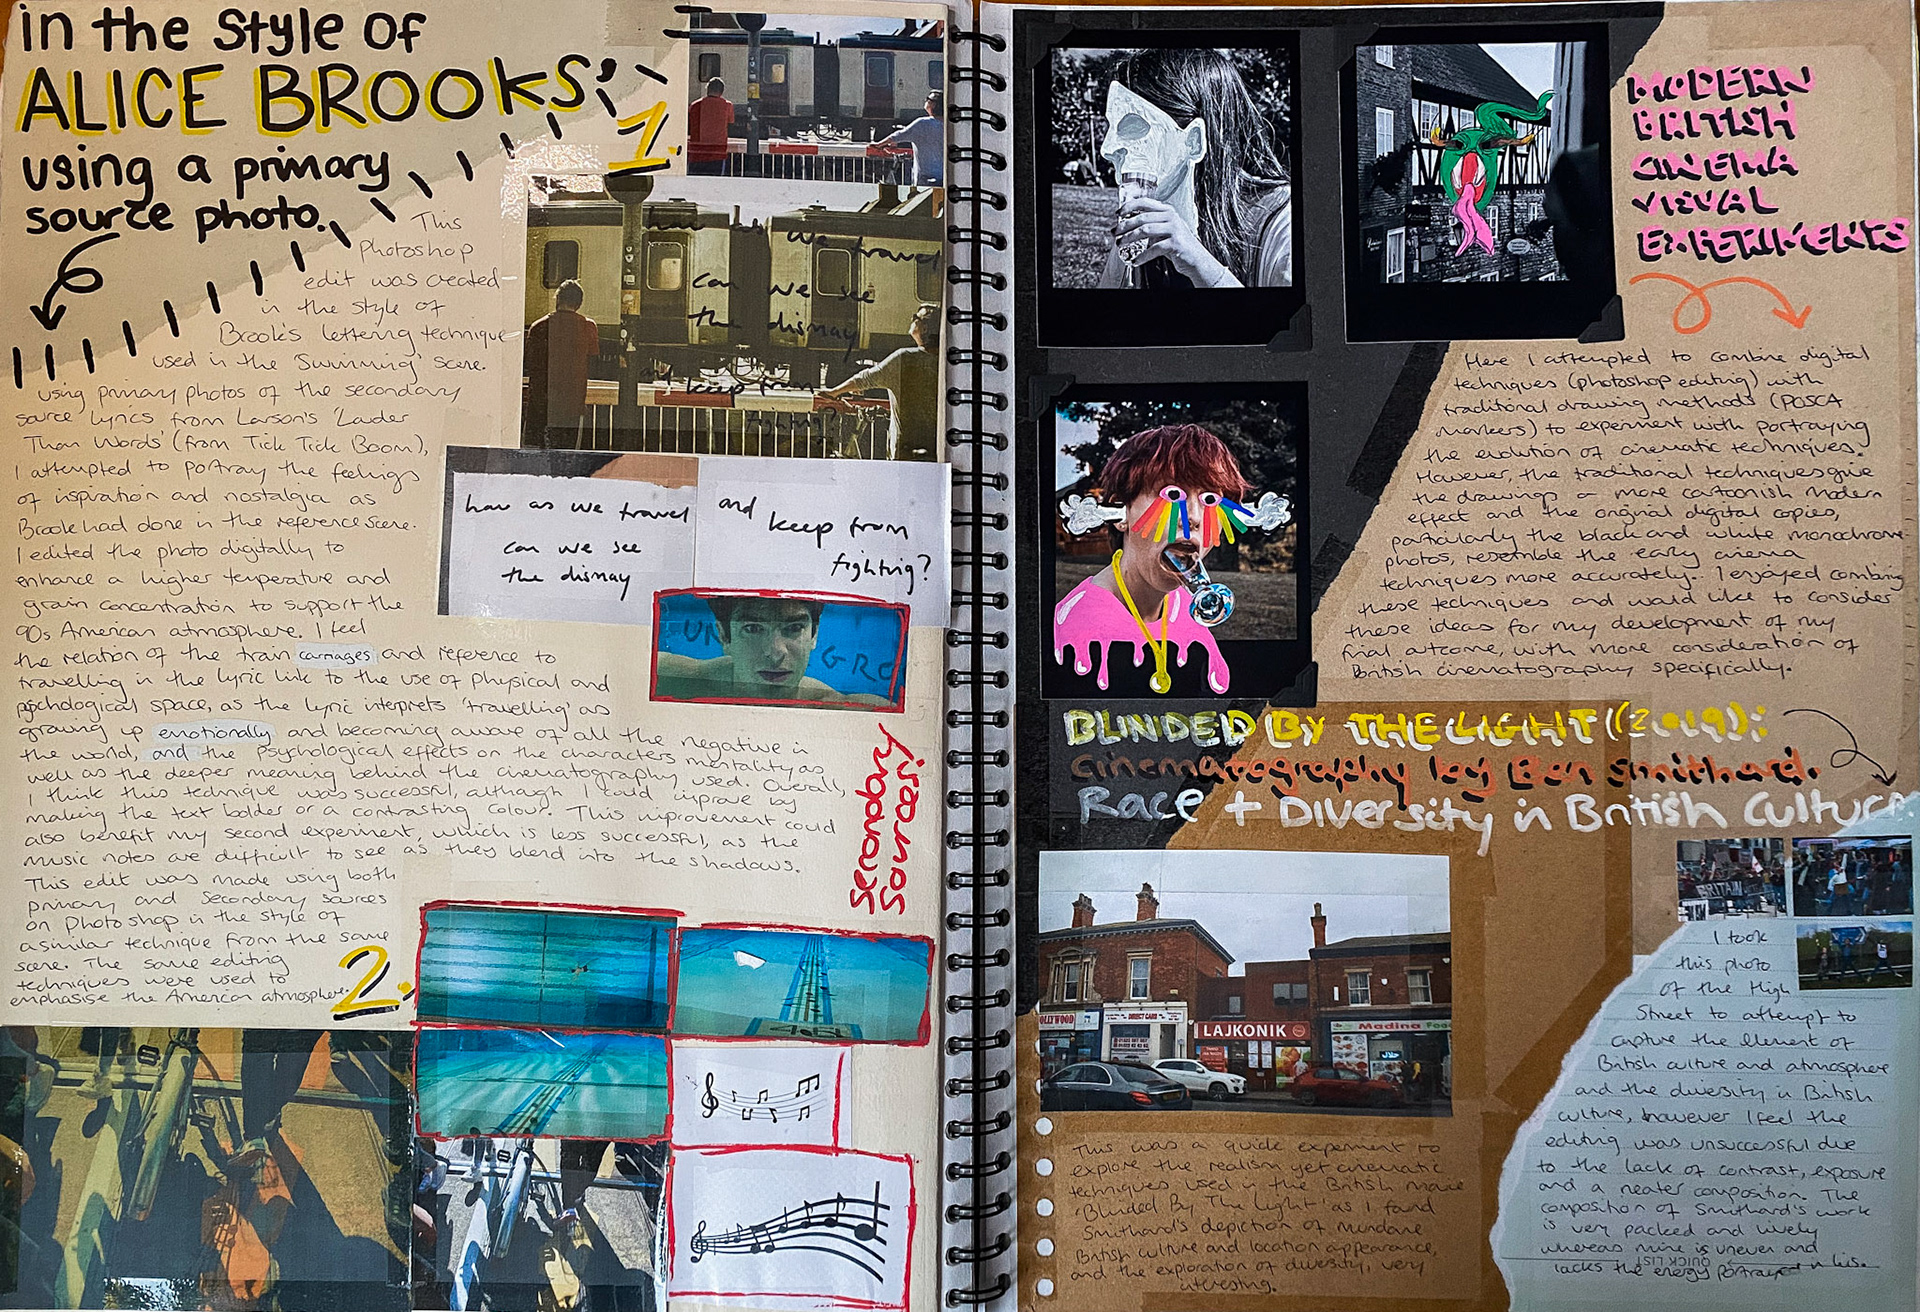 in the Style of
ALICE BROOKS'
using a primary
source photo.
1.
This
photoshop
edit was created
in the style of
Brook's lettering technique
used in the 'Swimming' scene.
using primary photos of the secondary
source lyrics from Larson's 'Louder
Than Words' (from Tick Tick Boom),
I attempted to portray the feelings
of inspiration and nostalgia as
Brook had done in the reference scene.
I edited the photo digitally to
enhance a higher temperature and
grain concentration to support the
90s American atmosphere. I feel
the relation of the train carriages and reference to
travelling in the lyric link to the use of physical and
psychological space, as the lyric interprets 'travelling' as
growing up emotionally and becoming aware of all the negative in
the world, and the psychological effects on the characters mentality as
well as the deeper meaning behind the cinematography used. Overall,
I think this technique was successful, although I could improve by
making the text bolder or a contrasting colour. This improvement could
also benefit my second experiment, which is less successful, as the
music notes are difficult to see as they blend into the shadows.
This edit was made using both
primary and secondary sources
on Photoshop in the style of
a similar technique from the same
scene. The same editing
techniques were used to
emphasise the American atmosphere.
2.
how as we travel
can we see
the dismay
and keep from
fighting?
how as we travel
can we see
the dismay
and keep from
fighting?
UN
GRE
Secondary
Sources:
MODERN
BRITISH
CINEMA
VISUAL
EXPERIMENTS
Here I attempted to combine digital
techniques (photoshop editing) with
traditional drawing methods (POSCA
markers) to experiment with portraying
the evolution of cinematic techniques.
However, the traditional techniques give
the drawings a more cartoonish modern
effect and the original digital copies,
particularly the black and white monochrome
photos, resemble the early cinema
techniques more accurately. I enjoyed combining
these techniques and would like to consider
these ideas for my development of my
final outcome, with more consideration of
British cinematography specifically.
BLINDED BY THE LIGHT (2019):
cinematography by Ben Smithard.
Race + Diversity in British Culture.
BRITAIN
OLLYWOOD
DIRECT CARS
LAJKONIK
Madina Foo
I took
this photo
of the High
Street to attempt to
capture the element of
British culture and atmosphere
and the diversity in British
culture, however I feel the
editing was unsuccessful due
to the lack of contrast, exposure
and a neater composition. The
composition of Smithard's work
is very packed and lively
whereas mine is uneven and
lacks the energy portrayed in his.
QUICK LIST
This was a quick experiment to
explore the realism yet cinematic
techniques used in the British movie
'Blinded By The Light' as I found
Smithard's depiction of mundane
British culture and location appearance,
and the exploration of diversity, very
interesting.